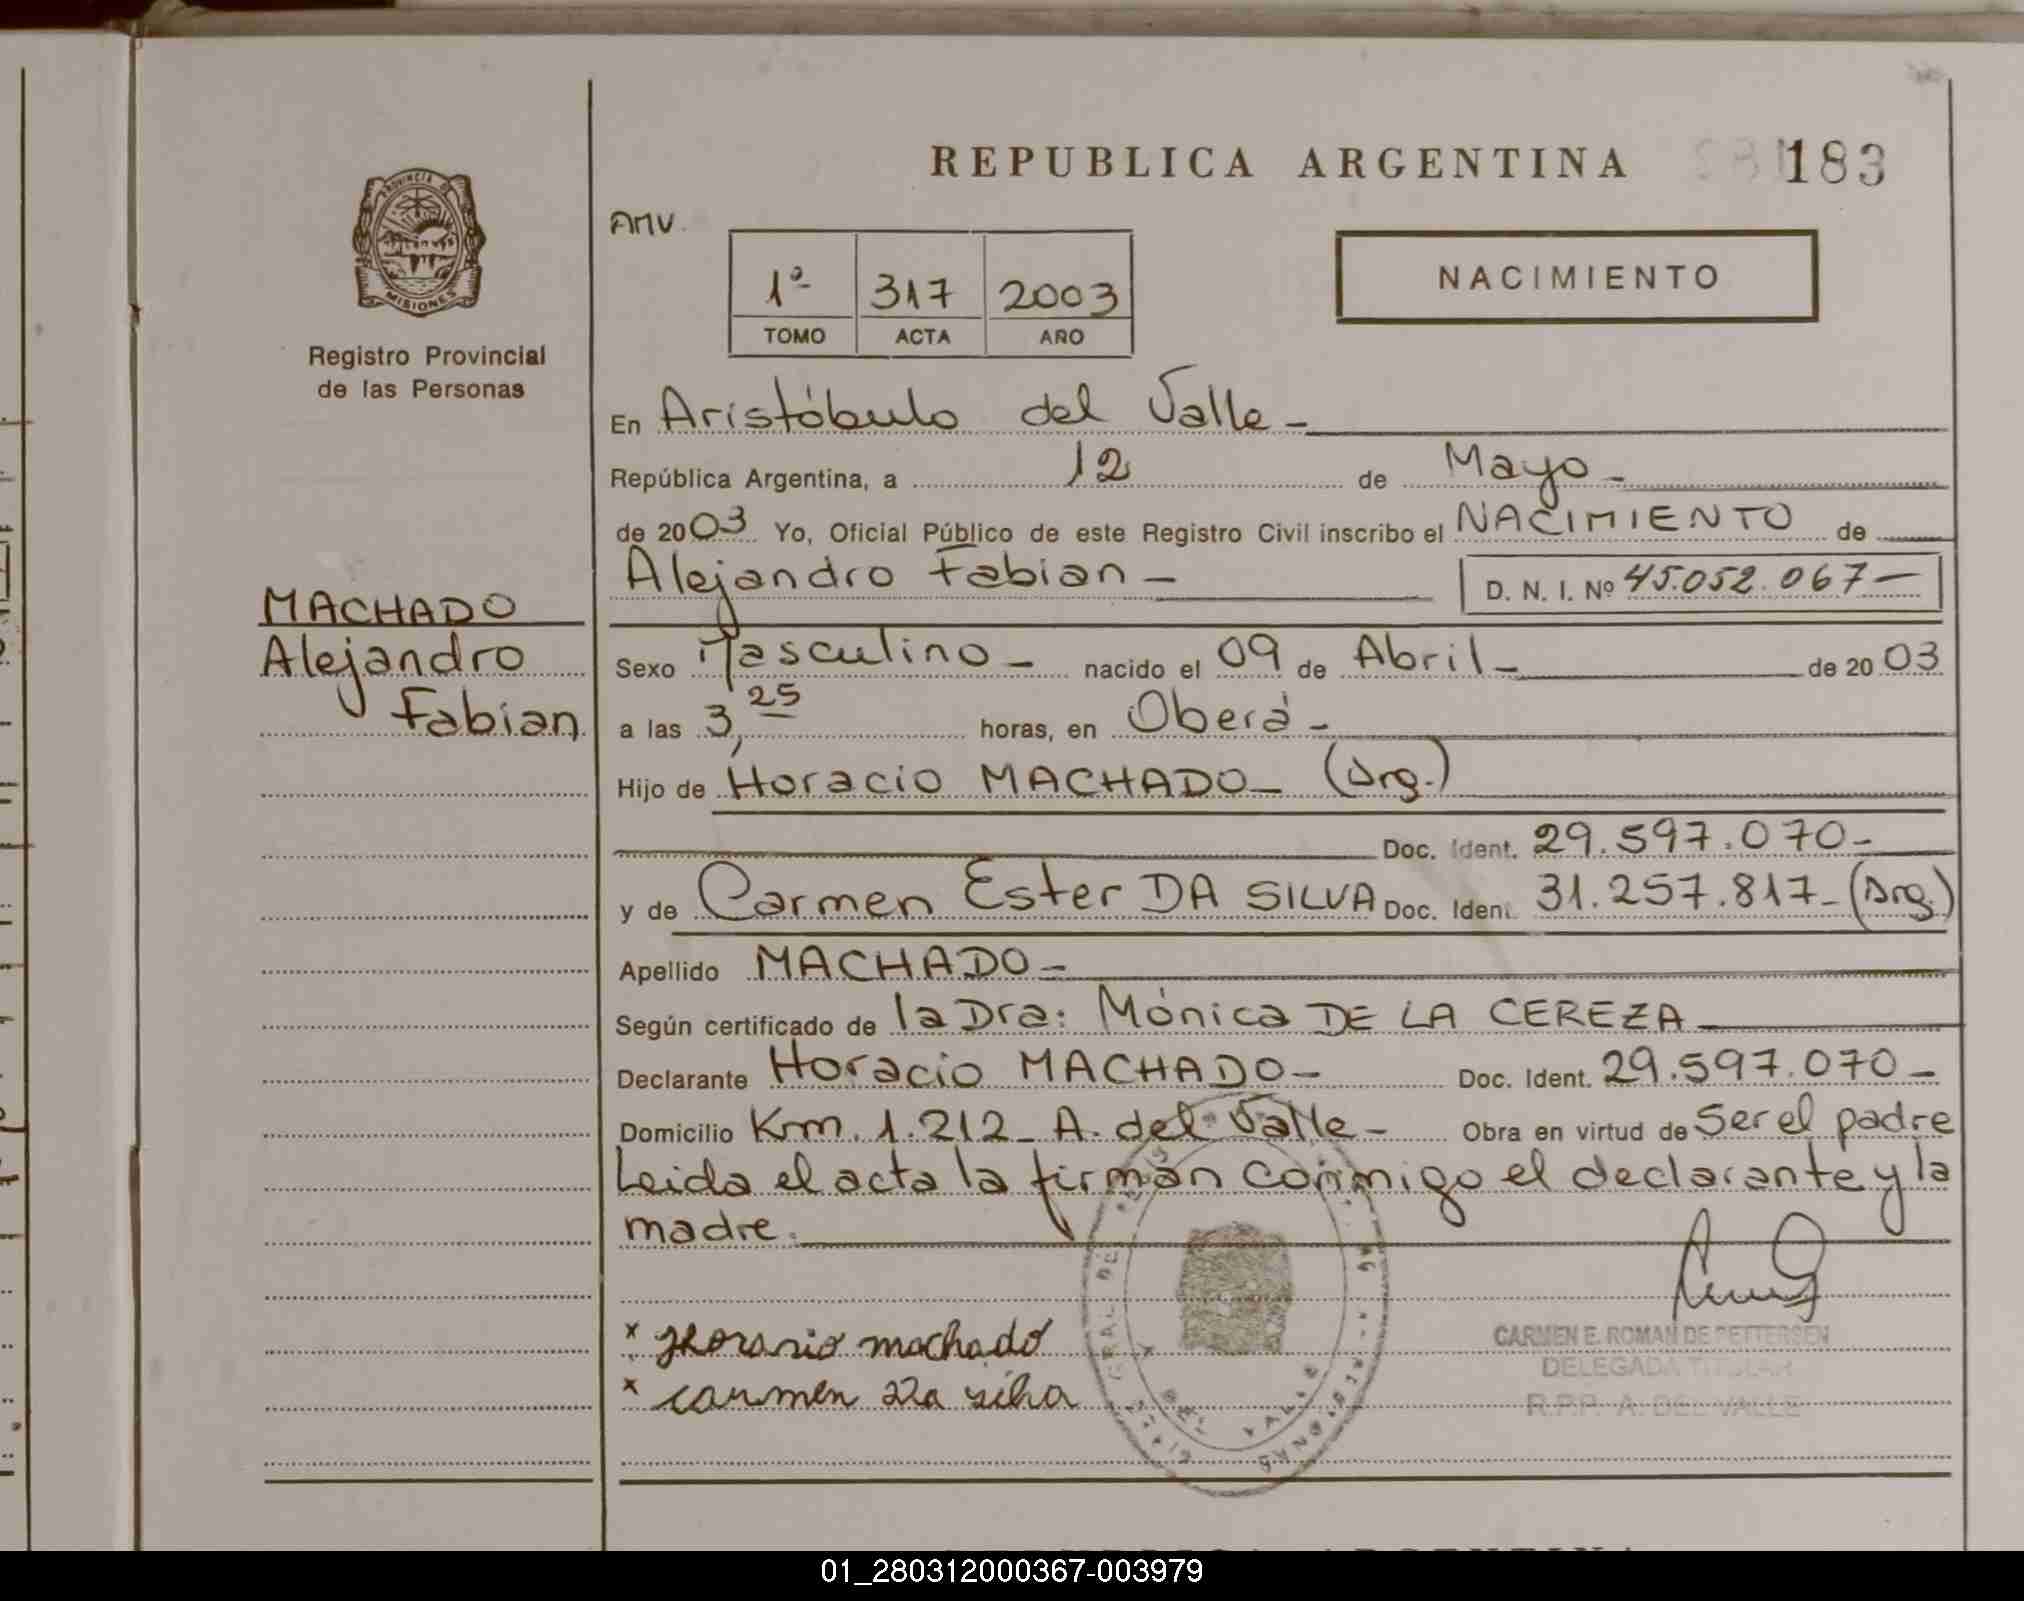 REPUBLICA ARGENTINA 183
PROVINCIA D
MISIONES
Registro Provincial
de las Personas
AMV.
1º 317 2003
TOMO ACTA AÑO
NACIMIENTO
En Aristóbulo del Valle -
República Argentina, a 12 de Mayo -
de 2003 Yo, Oficial Público de este Registro Civil inscribo el NACIMIENTO de
Alejandro Fabian - D. N. I. Nº 45.052.067 -
MACHADO
Alejandro
Fabian
Sexo Masculino - nacido el 09 de Abril - de 2003
a las 3,25 horas, en Oberá -
Hijo de Horacio MACHADO - (Arg.)
Doc. Ident. 29.597.070 -
y de Carmen Ester DA SILVA Doc. Ident. 31.257.817 - (Arg.)
Apellido MACHADO -
Según certificado de la Dra: Mónica DE LA CEREZA
Declarante Horacio MACHADO - Doc. Ident. 29.597.070 -
Domicilio Km. 1.212 - A. del Valle - Obra en virtud de Ser el padre
Leida el acta la firman conmigo el declarante y la
madre.
x Horasio machado
x carmen Da silva
CARMEN E. ROMAN DE PETTERSEN
DELEGADA TITULAR
R.P.P. A. DEL VALLE
DEL VALLE
MISIONES
01_280312000367-003979